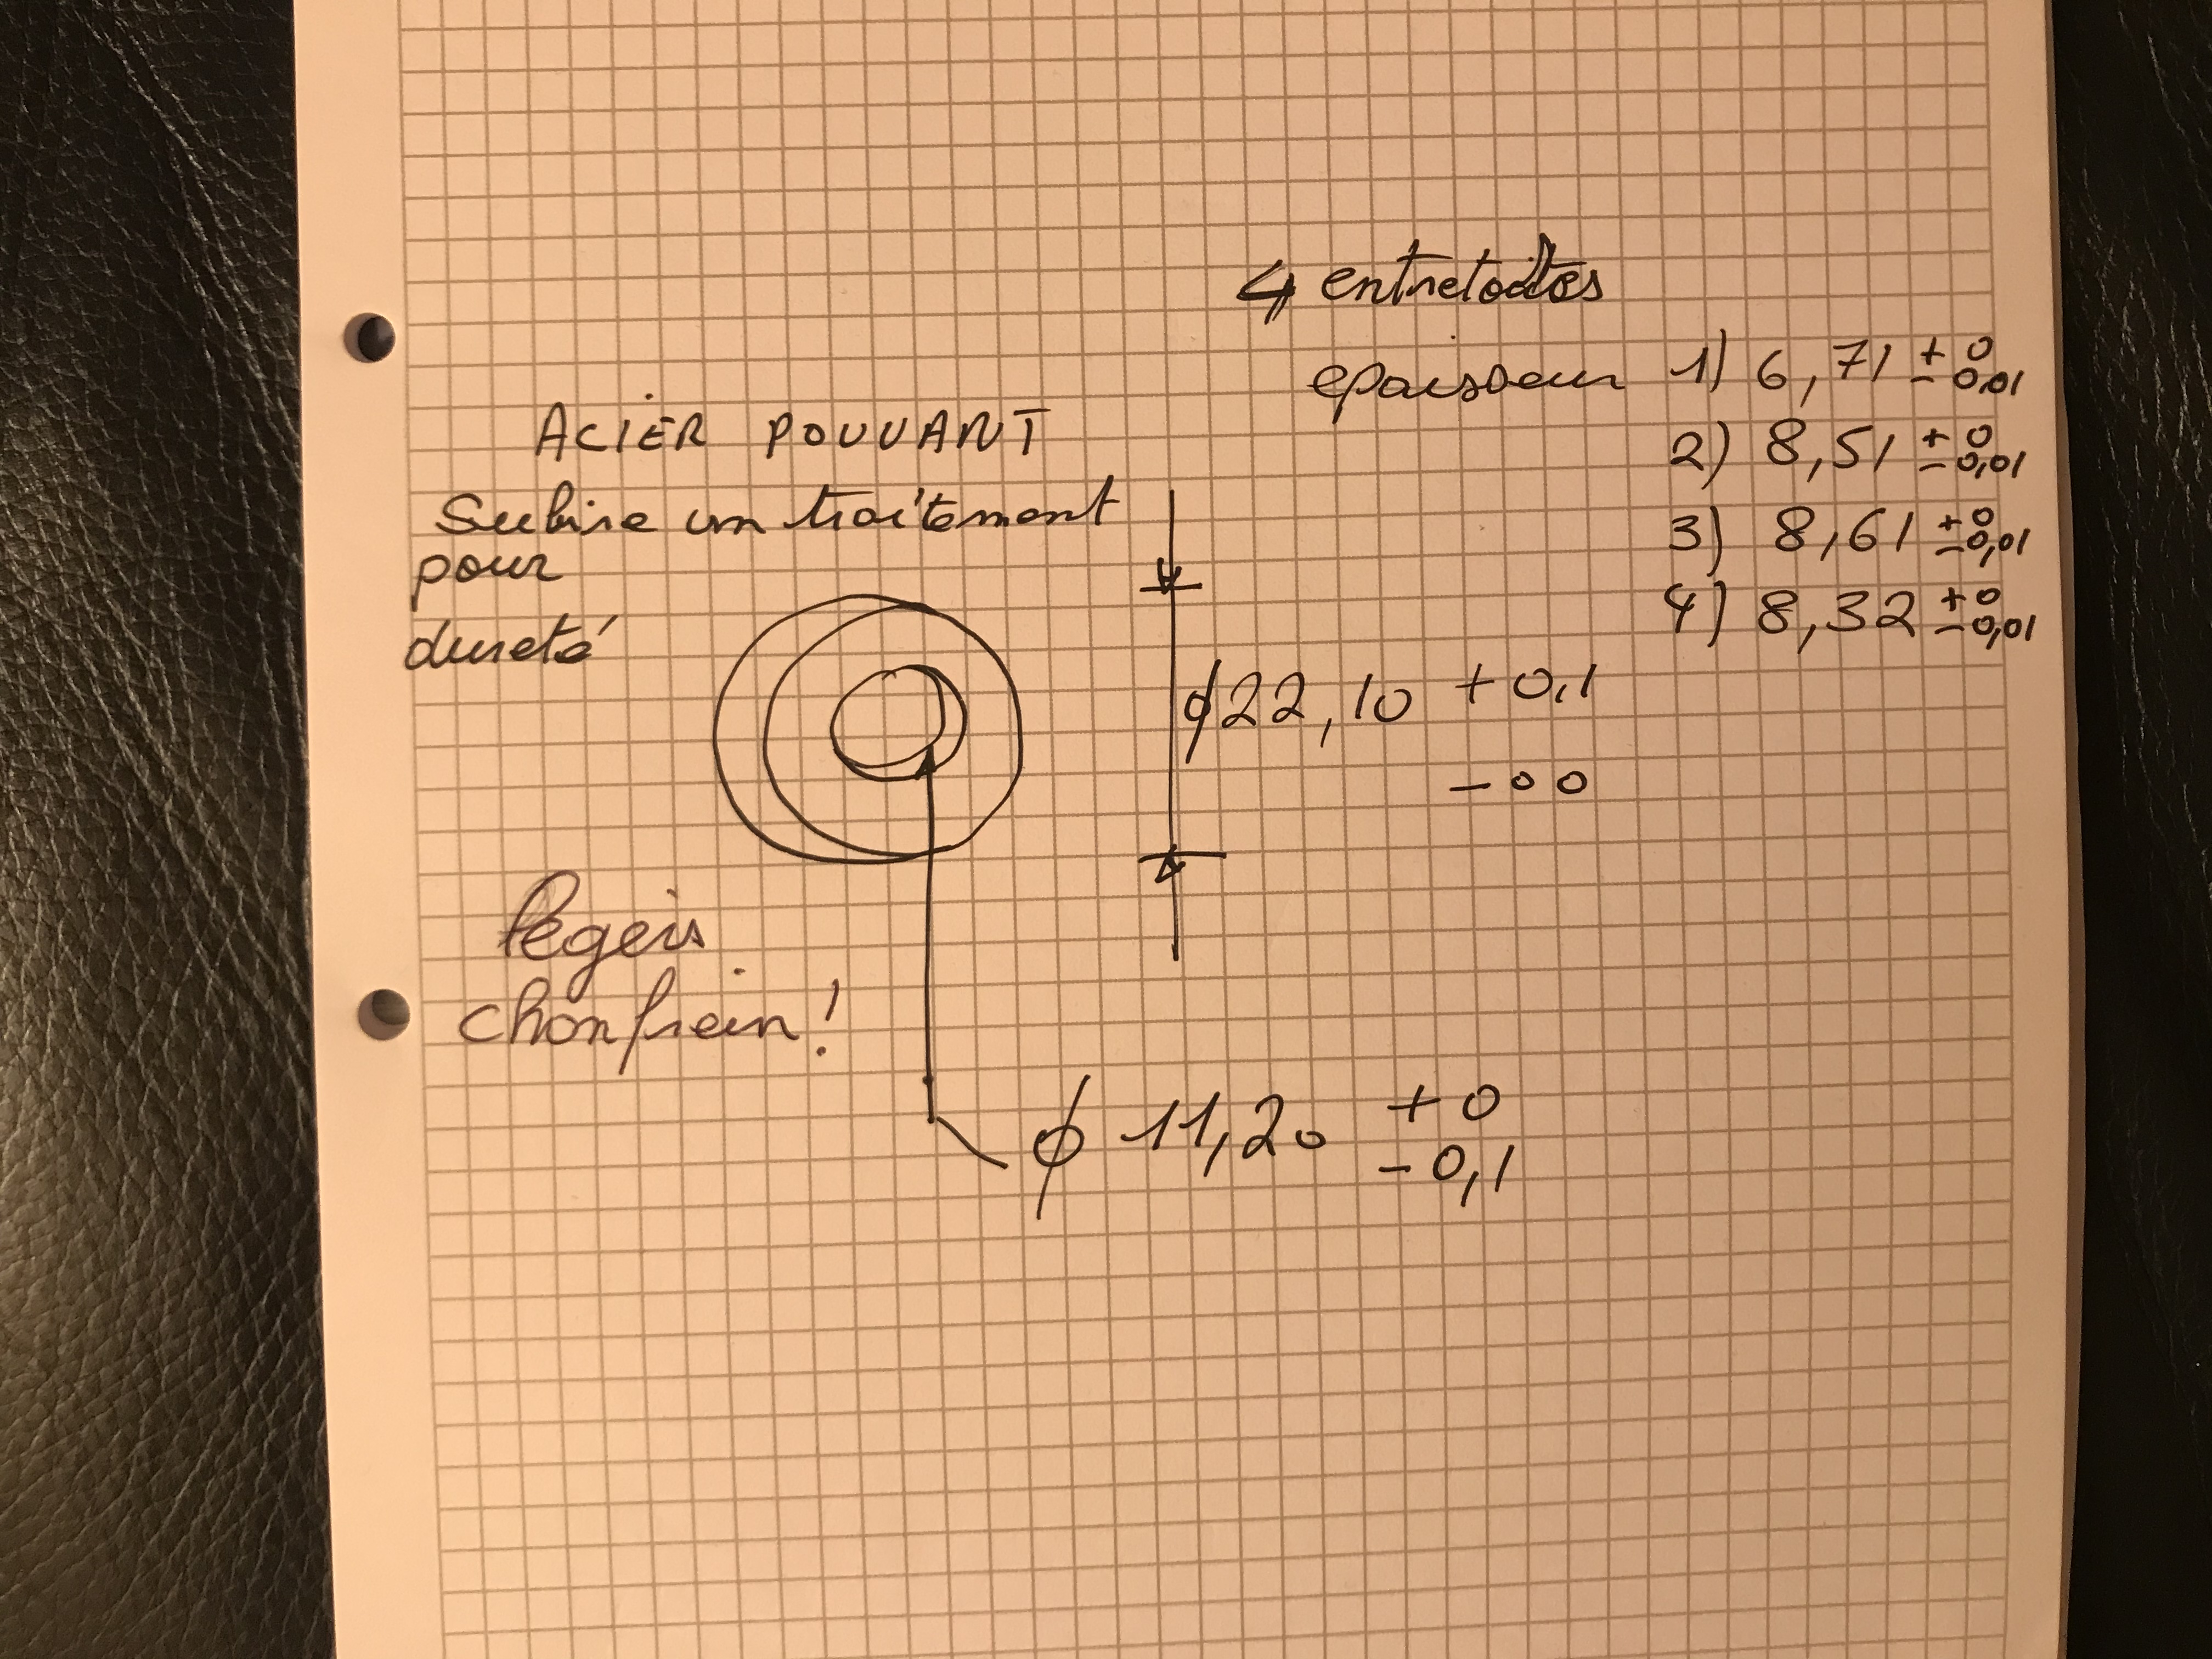 4 entretoites
epaisseur 1) 6,71 +0 -0,01
2) 8,51 +0 -0,01
3) 8,61 +0 -0,01
4) 8,32 +0 -0,01
ACIER POUVANT
Subire un traitement
pour
dureté
ϕ22,10 +0,1
-00
légers
chanfrein!
ϕ 11,20 +0
-0,1